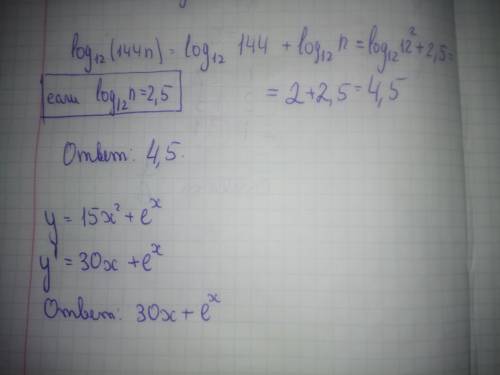 log₁₂(144n) = log₁₂ 144 + log₁₂ n = log₁₂ 12² + 2,5 =
если log₁₂ n = 2,5
= 2 + 2,5 = 4,5
Ответ: 4,5.
y = 15x² + eˣ
y' = 30x + eˣ
Ответ: 30x + eˣ